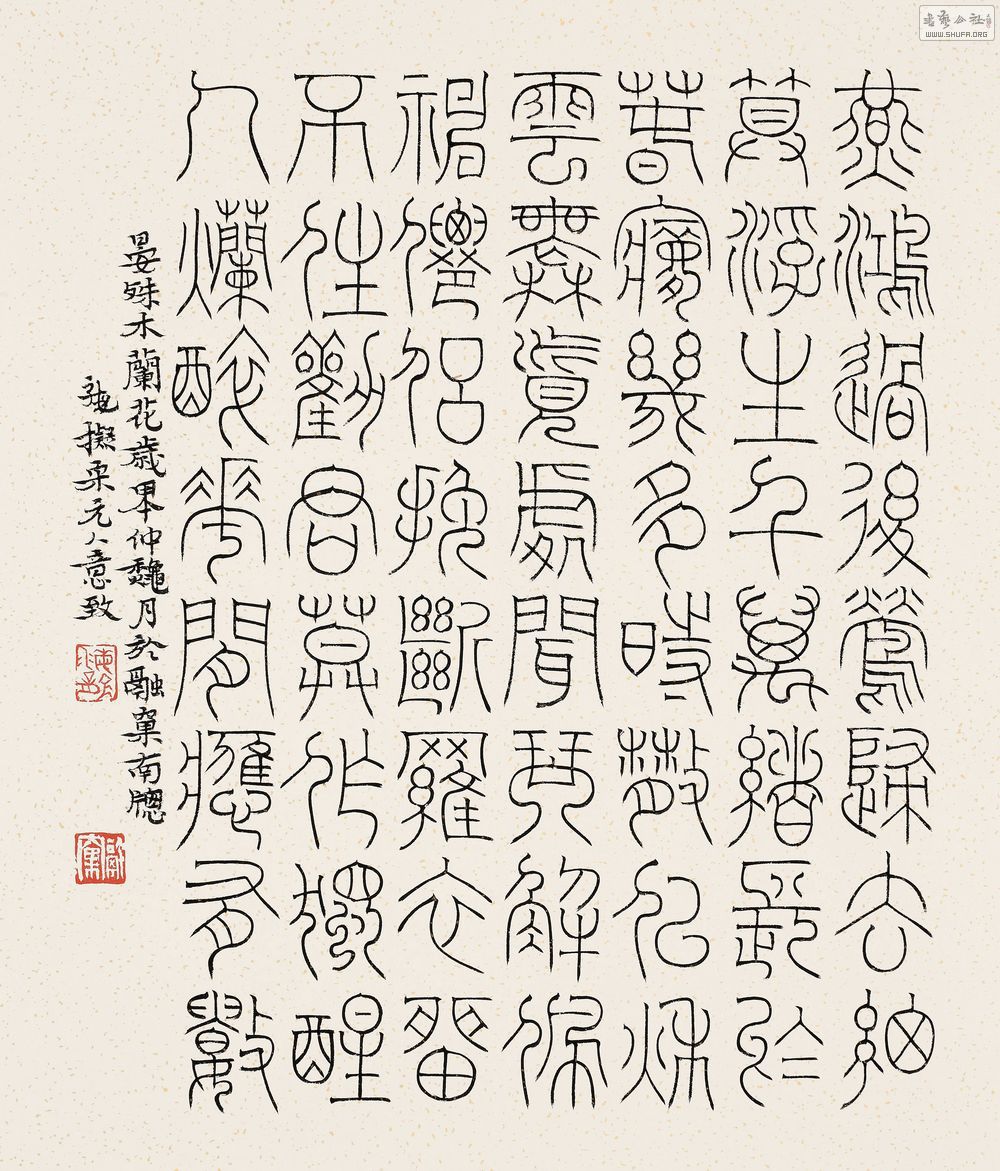 燕鴻過後鶯歸去細
算浮生千萬緒長於
春夢幾多時散似秋
雲無覓處聞琴解佩
神僊侶挽斷羅衣留
不住勸君莫作獨醒
人爛醉花間應有數
晏殊木蘭花歲仲龝月於融窠南牕
擬元人意致
書藝公社
WWW.SHUFA.ORG